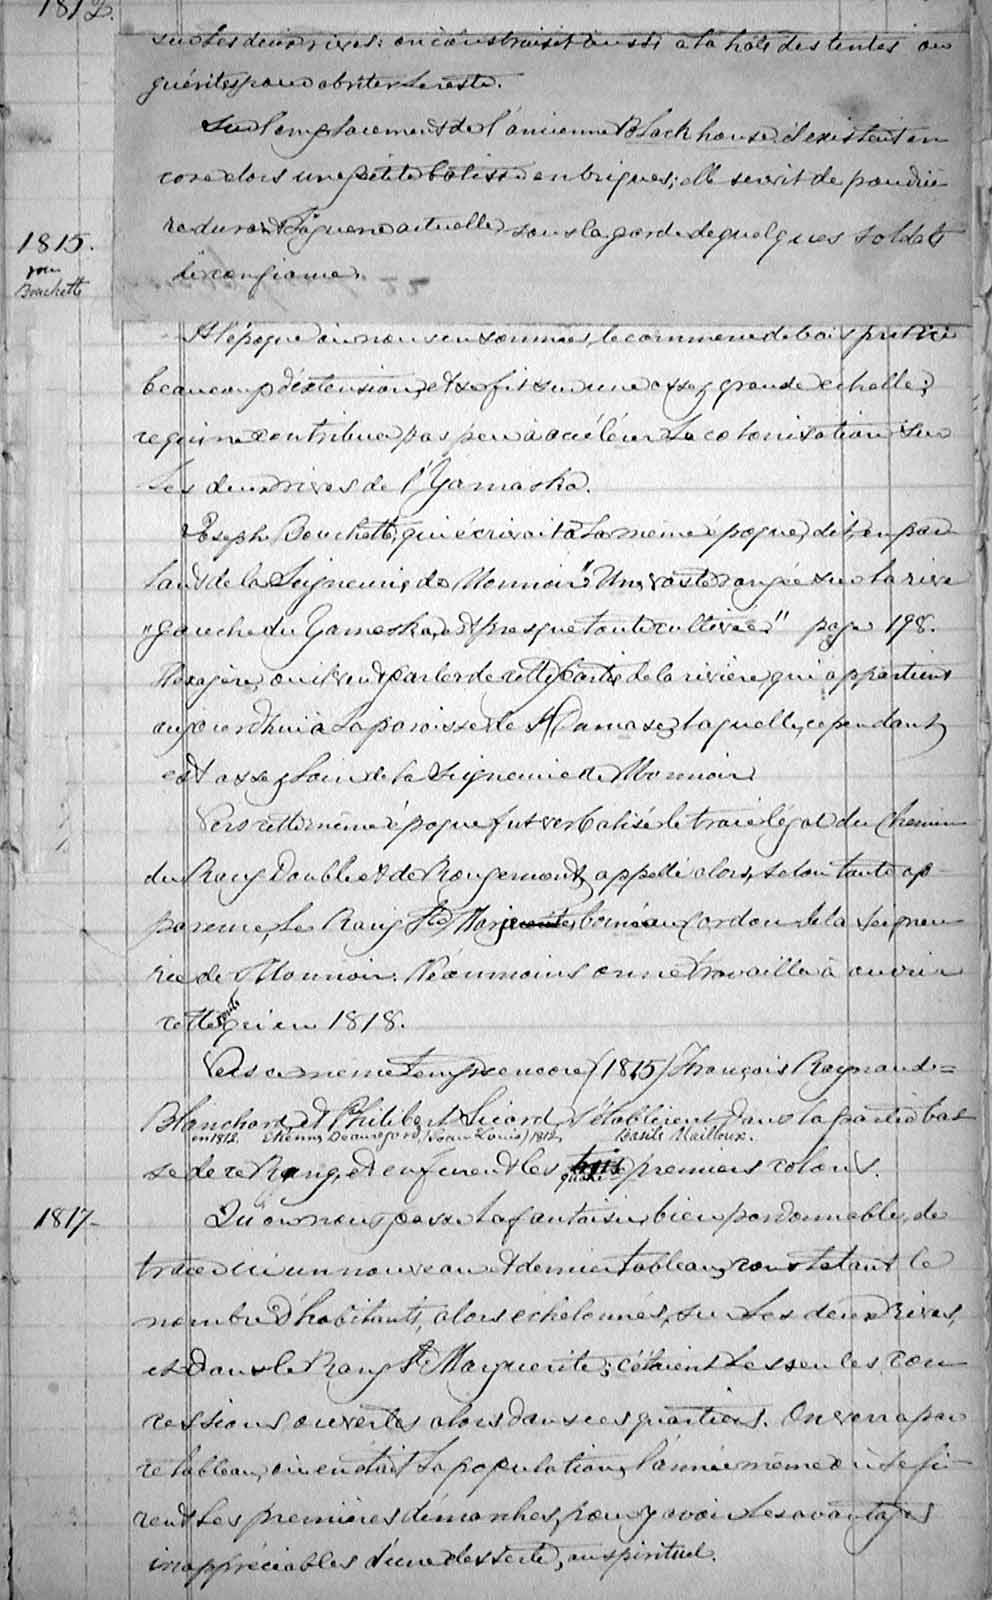 1812.
sur les deux rives: on construisit aussi à la hâte des tentes ou
guérites pour abriter le reste.
Sur l'emplacement de l'ancienne Block house il existait en
core alors une petite batisse en briques; elle servit de poudriè
re durant la guerre actuelle sous la garde de quelques soldats
1815.
pour
Bouchette
de confiance.
A l'époque où nous en sommes, le commerce de bois prit ici
beaucoup d'extension, et se fit sur une assez grande echelle;
ce qui ne contribua pas peu à accélérer la colonisation sur
les deux rives de l'Yamaska.
Joseph Bouchette, qui écrivait à la même époque, dit, en par
lant de la Seigneurie de Monnoir "Une vaste rangée sur la rive
"gauche du Yamaska, est presque toute cultivée." page 198.
Il exagère, ou il veut parler de cette partie de la rivière qui appartient
aujourd'hui à la paroisse de St Damase, laquelle, cependant,
est assez loin de la Seigneurie de Monnoir.
Vers cette même époque fut verbalisé le tracé légal du Chemin
du Rang Double et de Rougemont, appellé alors, selon toute ap-
parence, le Rang Ste Marguerite, borné au Cordon de la Seigneu
rie de Monnoir. Néanmoins on ne travailla à ouvrir
cette route qu'en 1818.
Vers ce même temps encore (1815) François Raynaud=
Blanchard, et Philibert Sicard s'établirent dans la partie bas
en 1812. Etienne Beauregard (Jean Louis) 1812, Basile Mailloux.
se de ce Rang, et en furent les trois premiers colons.
quatre
1817-
Qu'on nous passe la fantaisie, bien pardonnable, de
tracer ici un nouveau et dernier tableau, constatant le
nombre d'habitants, alors échelonnés, sur les deux rives,
et dans le Rang Ste Marguerite; c'étaient les seules con
cessions ouvertes alors dans ces quartiers. On verra par
ce tableau, où en était la population, l'année même où se fi-
rent les premières démarches, pour y avoir les avantages
inappréciables d'une desserte, au spirituel.